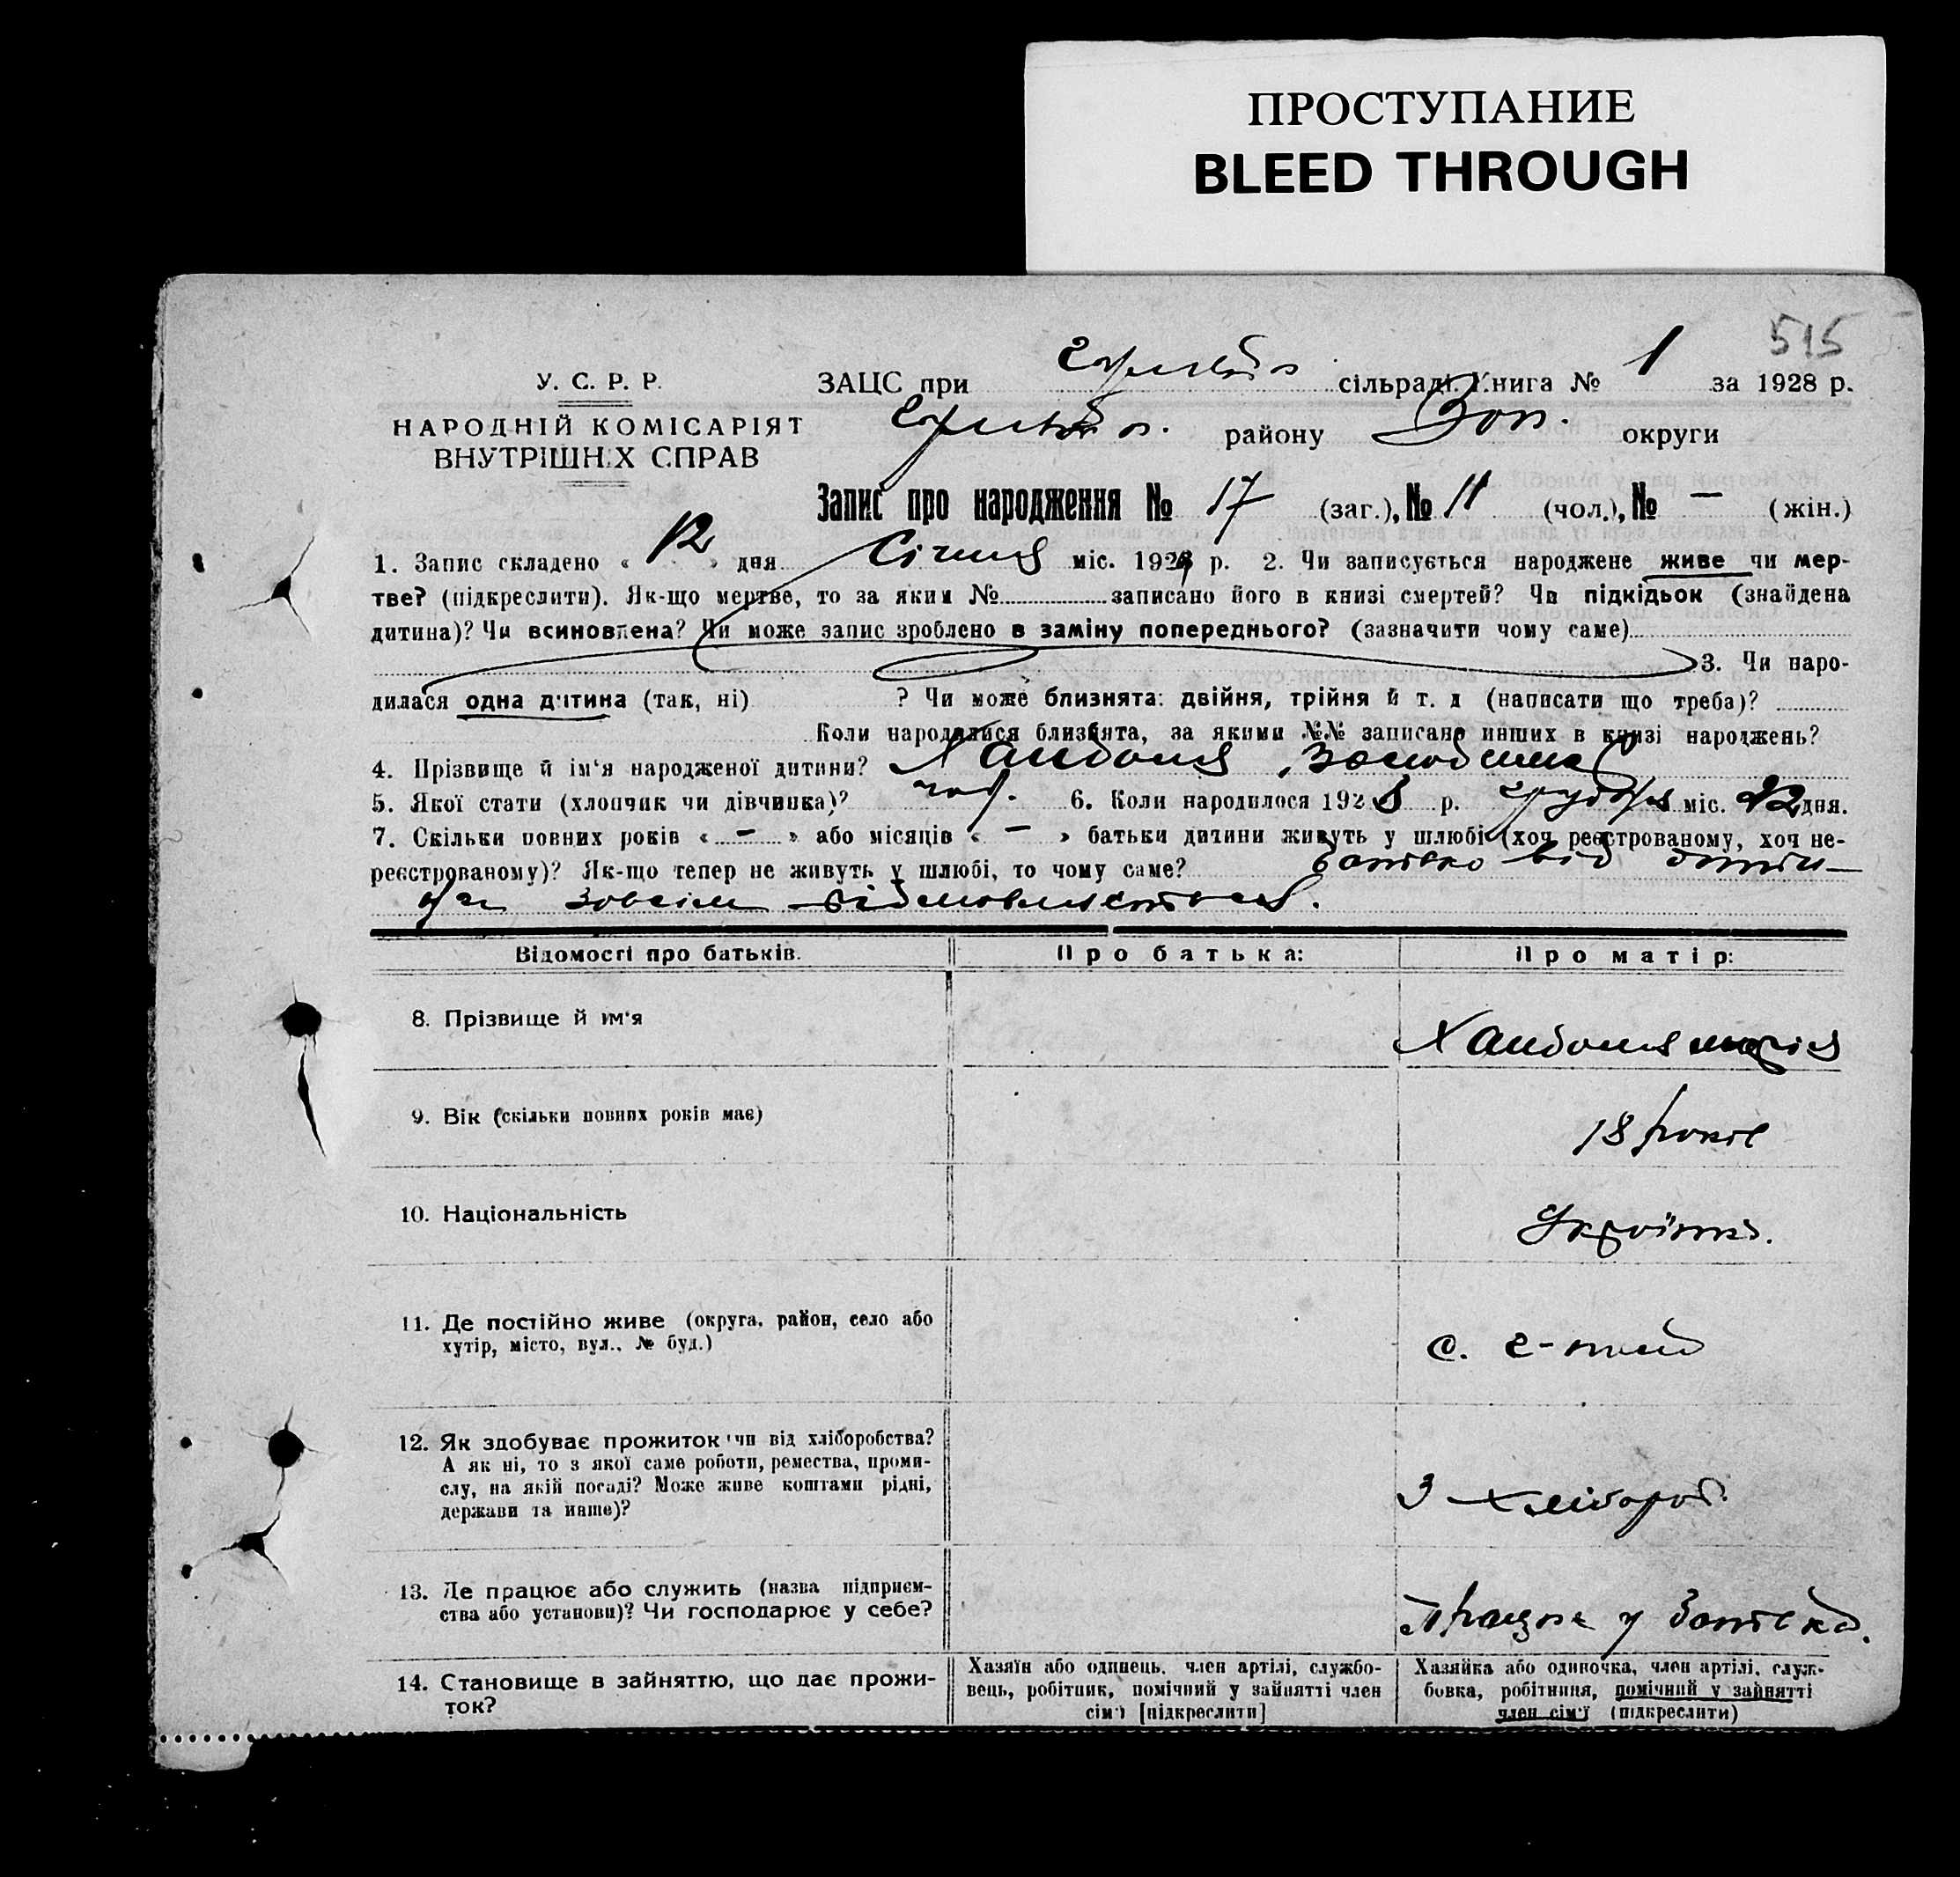 ПРОСТУПАНИЕ
BLEED THROUGH
515
У. С. Р. Р.
НАРОДНІЙ КОМІСАРІЯТ
ВНУТРІШНІХ СПРАВ
ЗАЦС при сільраді. Книга № 1 за 1928 р.
району Зап. округи
Запис про народження № 17 (заг.), № 11 (чол.), № — (жін.)
1. Запис складено « 12 » дня Січня міс. 1929 р. 2. Чи записується народжене живе чи мер-
тве? (підкреслити). Як-що мертве, то за яким № записано його в книзі смертей? Чи підкідьок (знайдена
дитина)? Чи всиновлена? Чи може запис зроблено в заміну попереднього? (зазначити чому саме)
3. Чи наро-
дилася одна дитина (так, ні) ? Чи може близнята: двійня, трійня й т. д (написати що треба)?
Коли народилися близнята, за якими №№ записано инших в книзі народжень?
4. Прізвище й ім'я народженої дитини? Хандоля
5. Якої стати (хлопчик чи дівчинка)? 6. Коли народилося 1928 р. грудня міс. 22 дня.
7. Скільки повних років « — » або місяців « — » батьки дитини живуть у шлюбі (хоч реєстрованому, хоч не-
реєстрованому)? Як-що тепер не живуть у шлюбі, то чому саме? батько від дити-
ни зовсім відмовляється.
Відомості про батьків. Про батька: Про матір:
8. Прізвище й им'я Хандоля Марія
9. Вік (скільки повних років має) 18 років
10. Національність Українка.
11. Де постійно живе (округа, район, село або
хутір, місто, вул., № буд.) с.
12. Як здобуває прожиток чи від хліборобства?
А як ні, то з якої саме роботи, ремества, проми-
слу, на якій посаді? Може живе коштами рідні,
держави та инше)? З хлібороб.
13. Де працює або служить (назва підприєм-
ства або установи)? Чи господарює у себе? Працює у батька.
14. Становище в зайняттю, що дає прожи-
ток?
Хазяїн або одинець, член артілі, службо-
вець, робітник, помічний у зайнятті член
сім'ї [підкреслити]
Хазяйка або одиночка, член артілі, служ-
бовка, робітниця, помічний у зайнятті
член сім'ї (підкреслити)